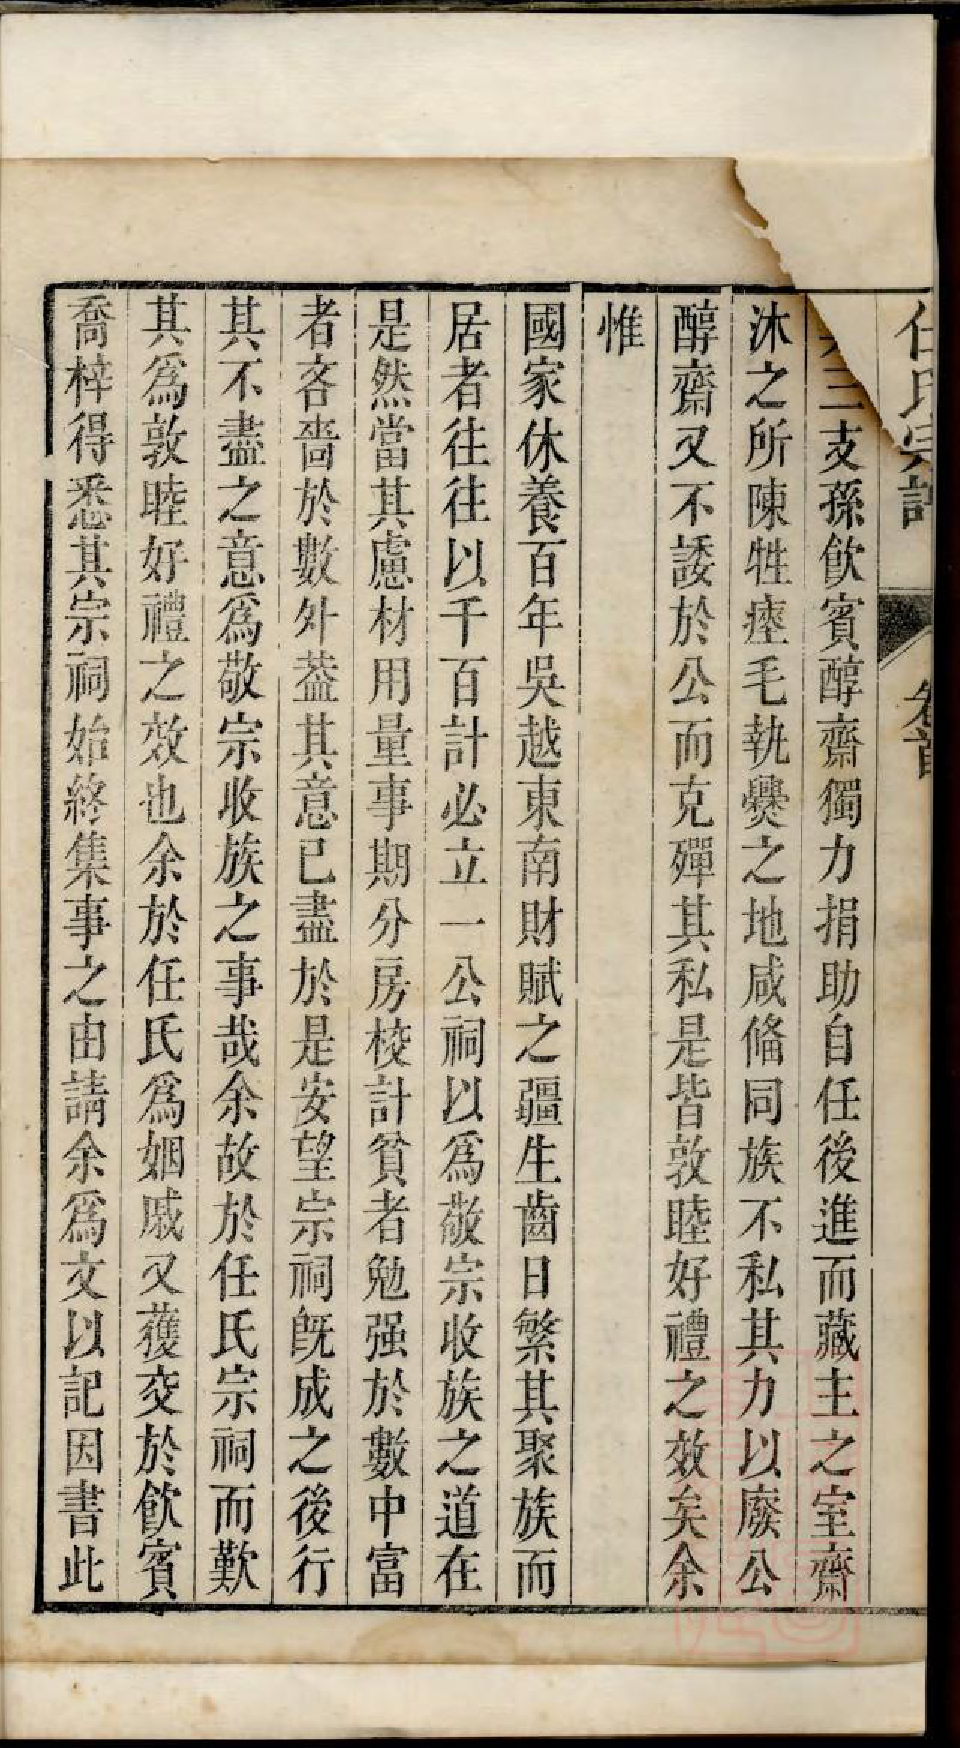 任氏宗譜
卷首
三支孫飲賓醇齋獨力捐助自任後進而藏主之室齋
沐之所陳牲瘞毛執爨之地咸俻同族不私其力以廢公
醇齋又不諉於公而克殫其私是皆敦睦好禮之效矣余
惟
國家休養百年吳越東南財賦之疆生齒日繁其聚族而
居者往往以千百計必立一公祠以為敬宗收族之道在
是然當其慮材用量事期分房校計貧者勉强於數中富
者吝嗇於數外葢其意已盡於是安望宗祠旣成之後行
其不盡之意爲敬宗收族之事哉余故於任氏宗祠而歎
其爲敦睦好禮之效也余於任氏爲姻戚又獲交於飲賓
喬梓得悉其宗祠始終集事之由請余爲文以記因書此